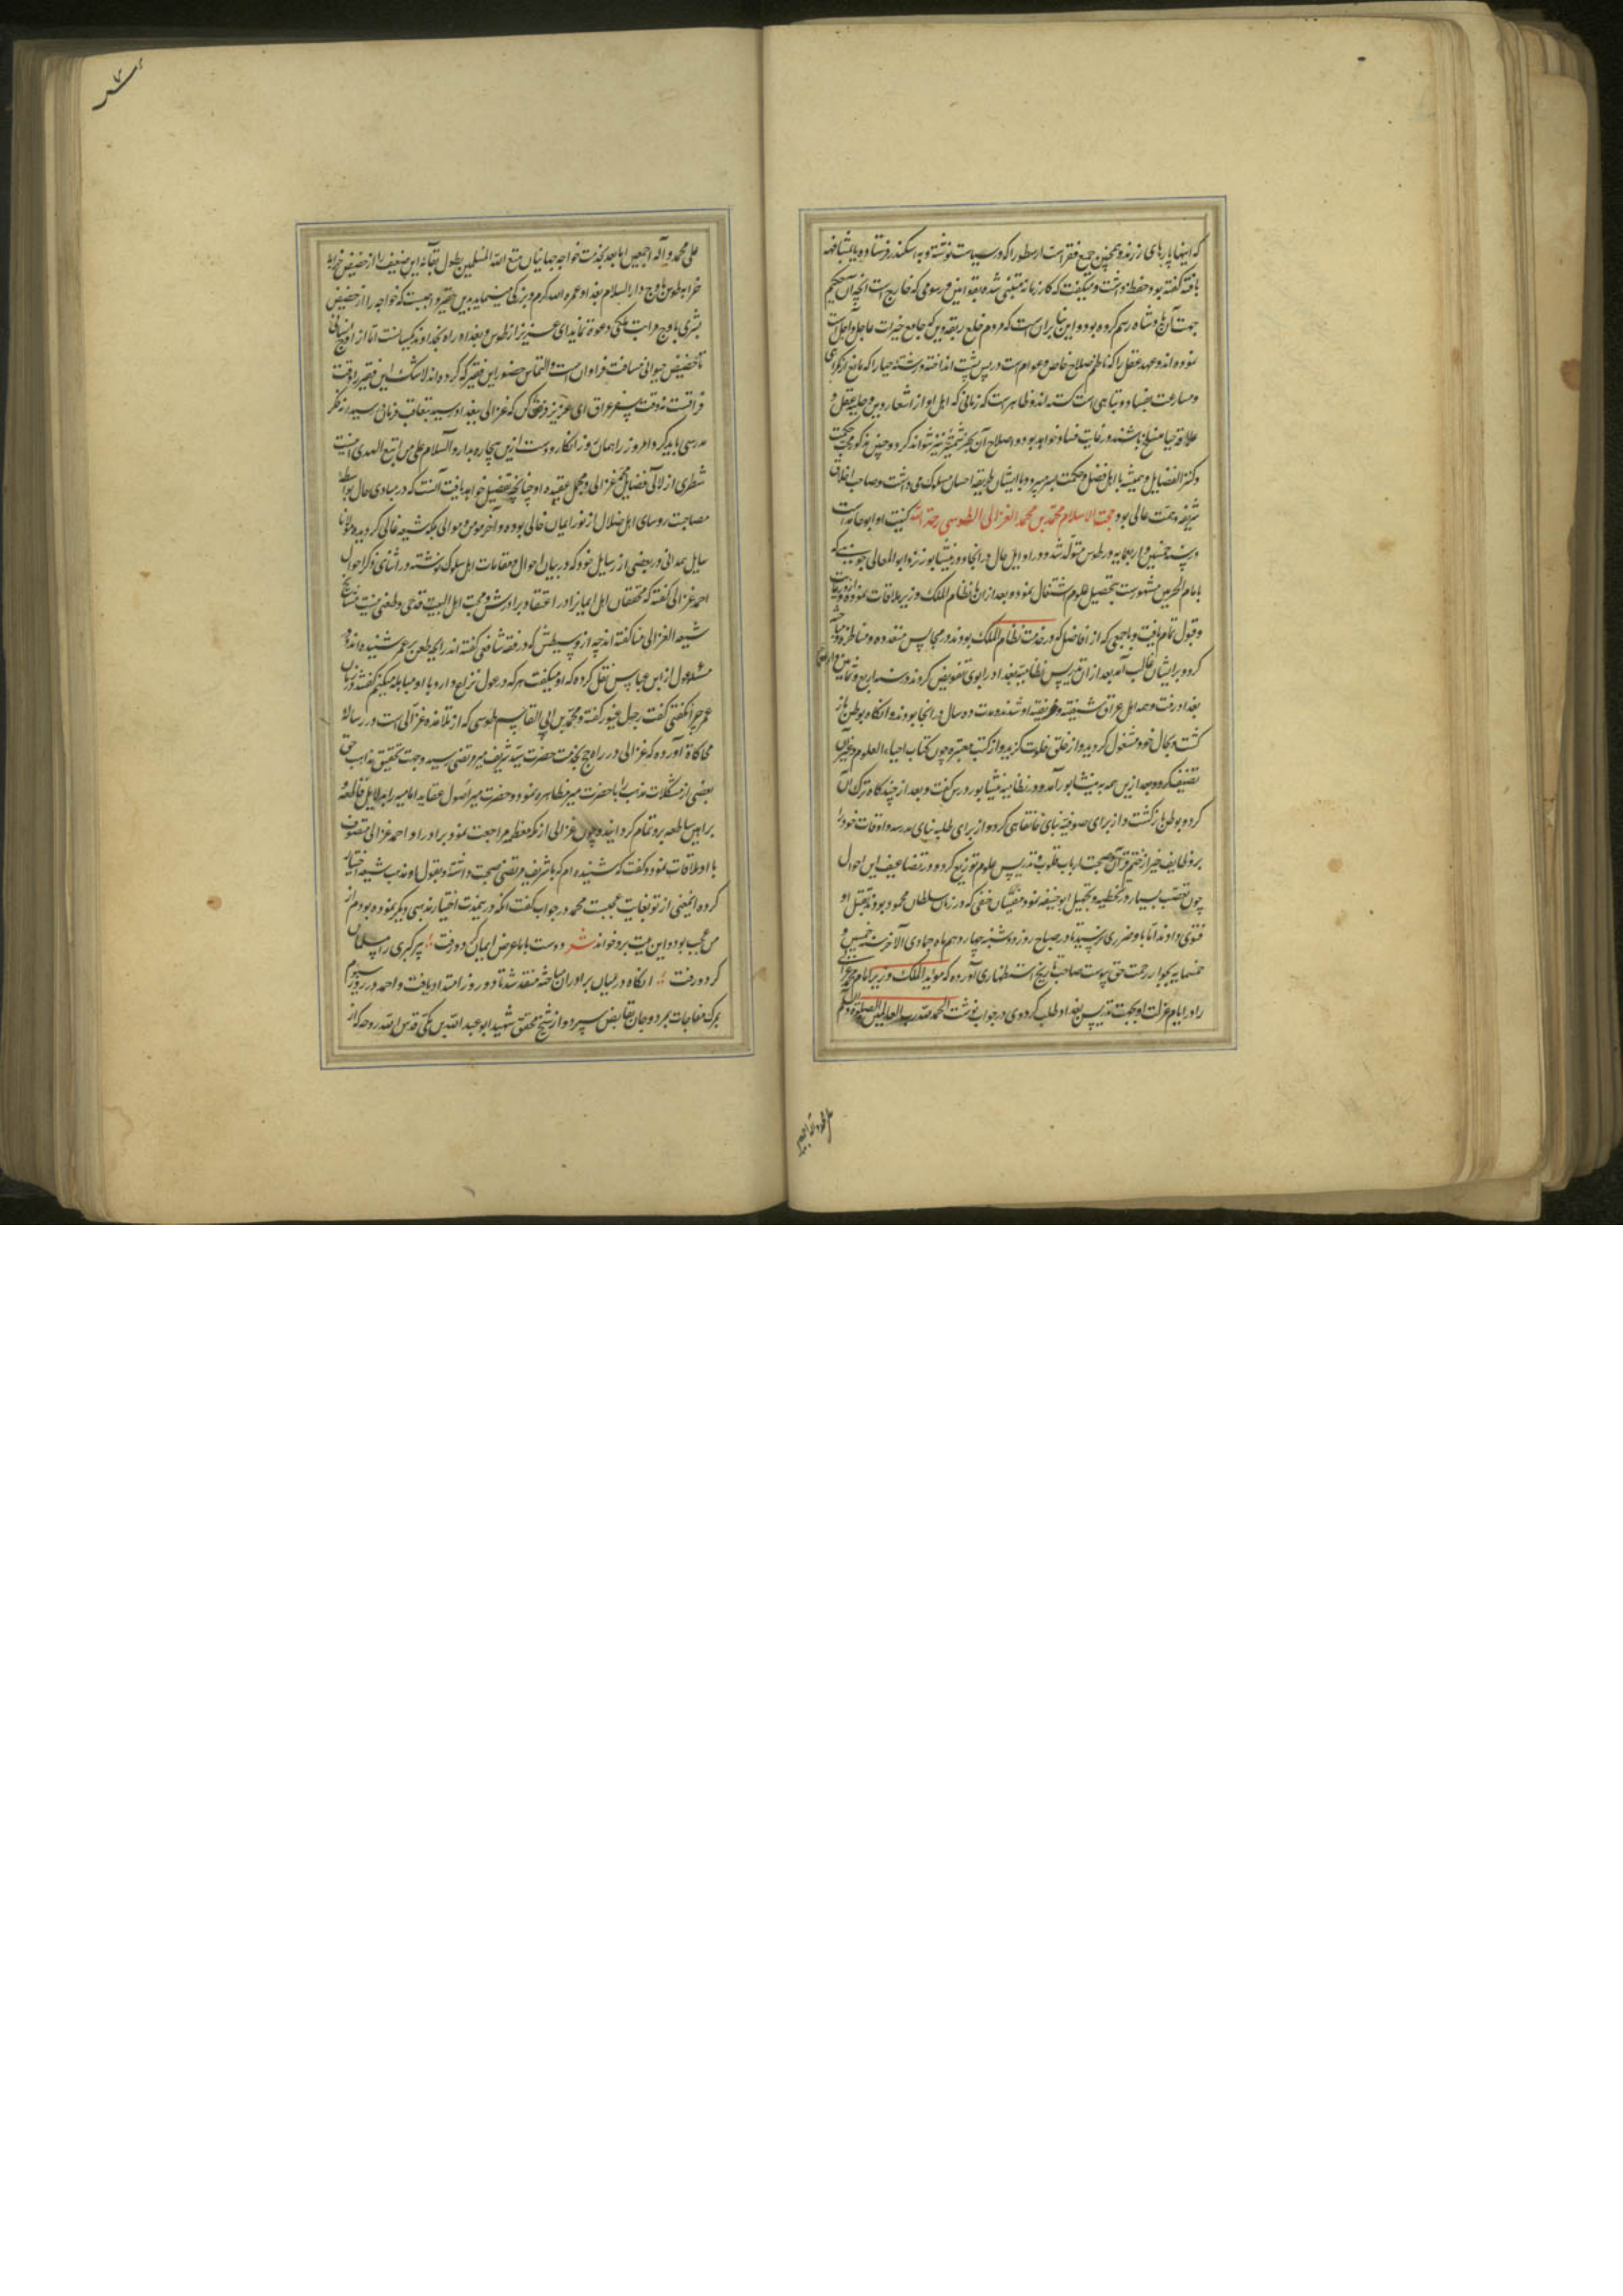 که اینها پارهای زر زند و همچنین جمع فقر است ارسطو را که در سیاست نوشته و به اسکندر فرستاده
یافته گفته بود حفظ داشت و میگفت که کار زمانه مبتنی شده بقوانین و رسومی که خارج است از آنچه آن حکیم
جهت آن پادشاه رسم کرده بود و این بنا بر آن است که مردم خلع ربقه دین که جامع خیرات عاجل و آجل است
نموده اند و عهد عقل را که ناظم صلاح خاص و عوام است در پس پشت انداخته و رشته حیا را که مانع از
و مسارعت بفساد و تباهی است گسسته اند و ظاهر است که زمانی که اهل او از اشعار دین و حلیه عقل و
علاقه حیا منسلخ باشند در غایت فساد خواهد بود و اصلاح آن بهر نتواند کرد و چون
و کثیر الفضایل و همیشه با اهل فضل و حکمت بسر میبرد و با ایشان طریقه احسان مسلوک می داشت و صاحب اخلاق
شریفه و همت عالی بود حجت الاسلام محمد بن محمد الغزالی الطوسی رحمه الله کنیت او ابو حامد است
در سنه خمسین و اربعمایه در طوس متولد شد و در اوایل حال در آنجا و در نیشابور نزد ابو المعالی جوینی که
بامام الحرمین مشهور است بتحصیل علوم اشتغال نمود و بعد از ان با نظام الملک وزیر ملاقات نموده
و قبول تمام یافت و با جمعی که از افاضل که در خدمت نظام الملک بودند در مجالس متعدده مناظره و مباحثه
کرد و برایشان غالب آمد بعد از ان تدریس نظامیه بغداد را بوی تفویض کردند و در سنه اربع و ثمانین و اربعمایه
بغداد رفت و همه اهل عراق شیفته و فریفته او شدند و مدت ده سال در آنجا بود و آنگاه بوطن باز
گشت و بحال خود مشغول گردید و از خلق خلوت گزید و از کتب معتبره چون کتاب احیاء العلوم و غیر آن
تصنیف کرد و بعد ازین همه به نیشابور آمد و در نظامیه نیشابور درس گفت و بعد از چندگاه ترک آن
کرد و بوطن باز گشت و از برای صوفیه بنای خانقاهی کرد و از برای طلبه بنای مدرسه و اوقات خود را
بر وظایف خیر از ختم قرآن و صحبت ارباب قلوب و تدریس علوم توزیع کرد و در تضاعیف این احوال
چون تعصب بسیار در تخطیه و تجهیل ابو حنیفه نمود مفتیان حنفی که در زمان سلطان محمود بودند بقتل او
فتوی دادند اما باو ضرری نرسید تا در صباح روز دوشنبه چهاردهم ماه جمادی الآخر سنه خمس و
خمسمایه بجوار رحمت حق پیوست صاحب تاریخ استظهاری آورده که مؤید الملک وزیر امام محمد غزالی
را در ایام عزلت او بجهت تدریس بغداد طلب کرد و وی در جواب نوشت الحمد لله رب العالمین و الصلوة و السلام
علی محمد و آله
علی محمد و آله اجمعین اما بعد بخدمت خواجه جهانیان متع الله المسلمین بطول بقائه این ضعیف را از حضیض خرابه
خرابه طوس باوج دار السلام بغداد عمره الله کرم و بزرگی مینماید بدین حقیر واجبست که خواجه را از حضیض
بشری باوج مراتب ملکی دعوت نماید ای عزیز از طوس و بغداد راه بخداوند یکسانست اما از اوج انسانی
تا حضیض حیوانی مسافت فراوان است و التماس حضور این فقیر که کرده اند لاشک این فقیر را وقت
فراقست نه وقت سفر عراق ای عزیز فرض کن که غزالی ببغداد رسید و متعاقب فرمان در رسید نه فکر
مدرسی باید کرد امروز را همان روز انگار و دست ازین بیچاره بدار و السلام علی من اتبع الهدی اینست
شطری از لآلی فضایل محمد غزالی و مجمل عقیده او چنانچه تفصیل خواهد یافت آنست که در مبادی حال بواسطه
مصاحبت روسای اهل ضلال از نور ایمان خالی بوده و آخر مؤمن و موالی بلکه شیعه غالی گردیده مولانا
سایل همدانی در بعضی از رسایل خود که در بیان احوال و مقامات اهل سلوک نوشته در اثنای ذکر احوال
احمد غزالی گفته که محققان اهل ایمان را در اعتقاد برادرش و محبت اهل البیت قدحی و طعنی نیست
شیعه الغزالی منا گفته اند چه از وسیطش که در فقه شافعی گفته اند رایحه طعن بر عمر شنیده اند و
مسئله عول از ابن عباس نقل کرده که او میگفت هر که در عول نزاع دارد با او مباهله میکنم گفتند در زمان
عمر چرا نگفتی گفت رجل غیور گفته و محمد بن ابی القاسم طوسی که از تلامذه غزالی است در رساله
محاکاة آورده که غزالی در راه حج بخدمت حضرت سید شریف میر مرتضی رسید و جهت تحقیق مذاهب حق
بعضی از مشکلات مذهب را با حضرت میر مظاهره نمود و حضرت میر اصول عقاید امامیه را بدلایل قاطعه و
براهین ساطعه برو تمام گردانیده و چون غزالی از مکه معظمه مراجعت نمود برادر او احمد غزالی متصوف
با او ملاقات نمود و گفت که شنیده ام که با شریف مرتضی صحبت داشته و بقول او مذهب شیعه اختیار
کرده اینمعنی از تو بغایت عجبست محمد در جواب گفت اگر درینمدت اختیار مذهبی دیگر نموده بودم از
من عجب بود و این بیت برو خواند شعر دوست با ما عرض ایمان کرد و رفت ؛ پیر گبری را مسلمان
کرد و رفت ؛ آنگاه در میان برادران مباحثه منعقد شد تا دو روز امتداد یافت و احمد در روز سیوم
بمرگ مفاجات بمرد و جان بقابض سپرد و از شیخ محقق شهید ابو عبد الله بن مکی قدس الله روحه که از